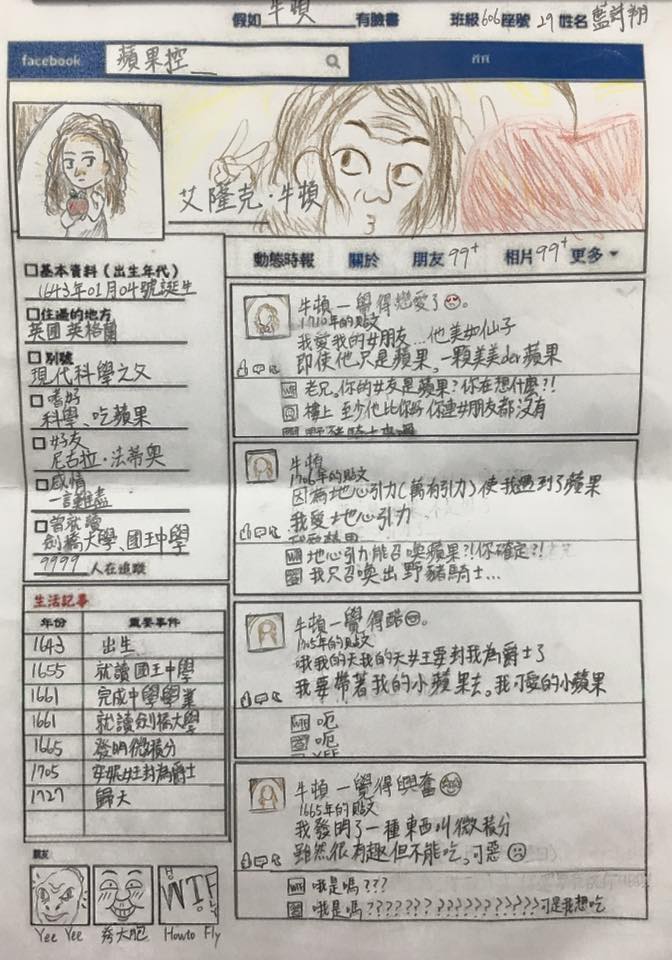 假如 牛頓 有臉書 班級 606 座號 29 姓名 藍詩翔
facebook 蘋果控
艾薩克·牛頓
動態時報 關於 朋友 99+ 相片 99+ 更多
基本資料（出生年代）
1643年01月04號誕生
住過的地方
英國 英格蘭
別號
現代科學之父
嗜好
科學、吃蘋果
好友
尼古拉·法蒂奧
感情
一言難盡
曾就讀
劍橋大學、國王中學
9999 人在追蹤
生活記事
年份 重要事件
1643 出生
1655 就讀國王中學
1661 完成中學學業
1661 就讀劍橋大學
1665 發明微積分
1705 安妮女王封為爵士
1727 歸天
朋友
Yee Yee
秀大肥
WTF
Howto Fly
牛頓－覺得戀愛了
1710年的貼文
我愛我的女朋友...他美如仙子
即使他只是蘋果，一顆美美der蘋果
老兄，你的女友是蘋果?你在想什麼?!
樓上 至少他比你好 你連女朋友都沒有
牛頓
1706年的貼文
因為地心引力(萬有引力)使我遇到了蘋果
我愛地心引力
地心引力能召喚蘋果?!你確定?!
我只召喚出野豬騎士...
牛頓－覺得酷。
1705年的貼文
哦我的天我的天女王要封我為爵士了
我要帶著我的小蘋果去。我可愛的小蘋果
呃
呃
YEE
牛頓－覺得興奮
1665年的貼文
我發明了一種東西叫微積分
雖然很有趣但不能吃，可惡
哦是嗎???
哦是嗎????????????????可是我想吃